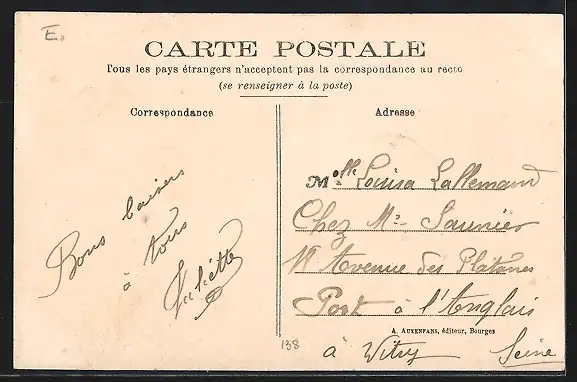 E.
CARTE POSTALE
Tous les pays étrangers n'acceptent pas la correspondance au recto
(se renseigner à la poste)
Correspondance
Bons baisers
à tous
Juliette
Adresse
Melle Louisa Lallemand
Chez Mr Saunier
Avenue des Platanes
Port à l'Anglais
A. AUXENFANS, éditeur, Bourges
à Vitry Seine
138